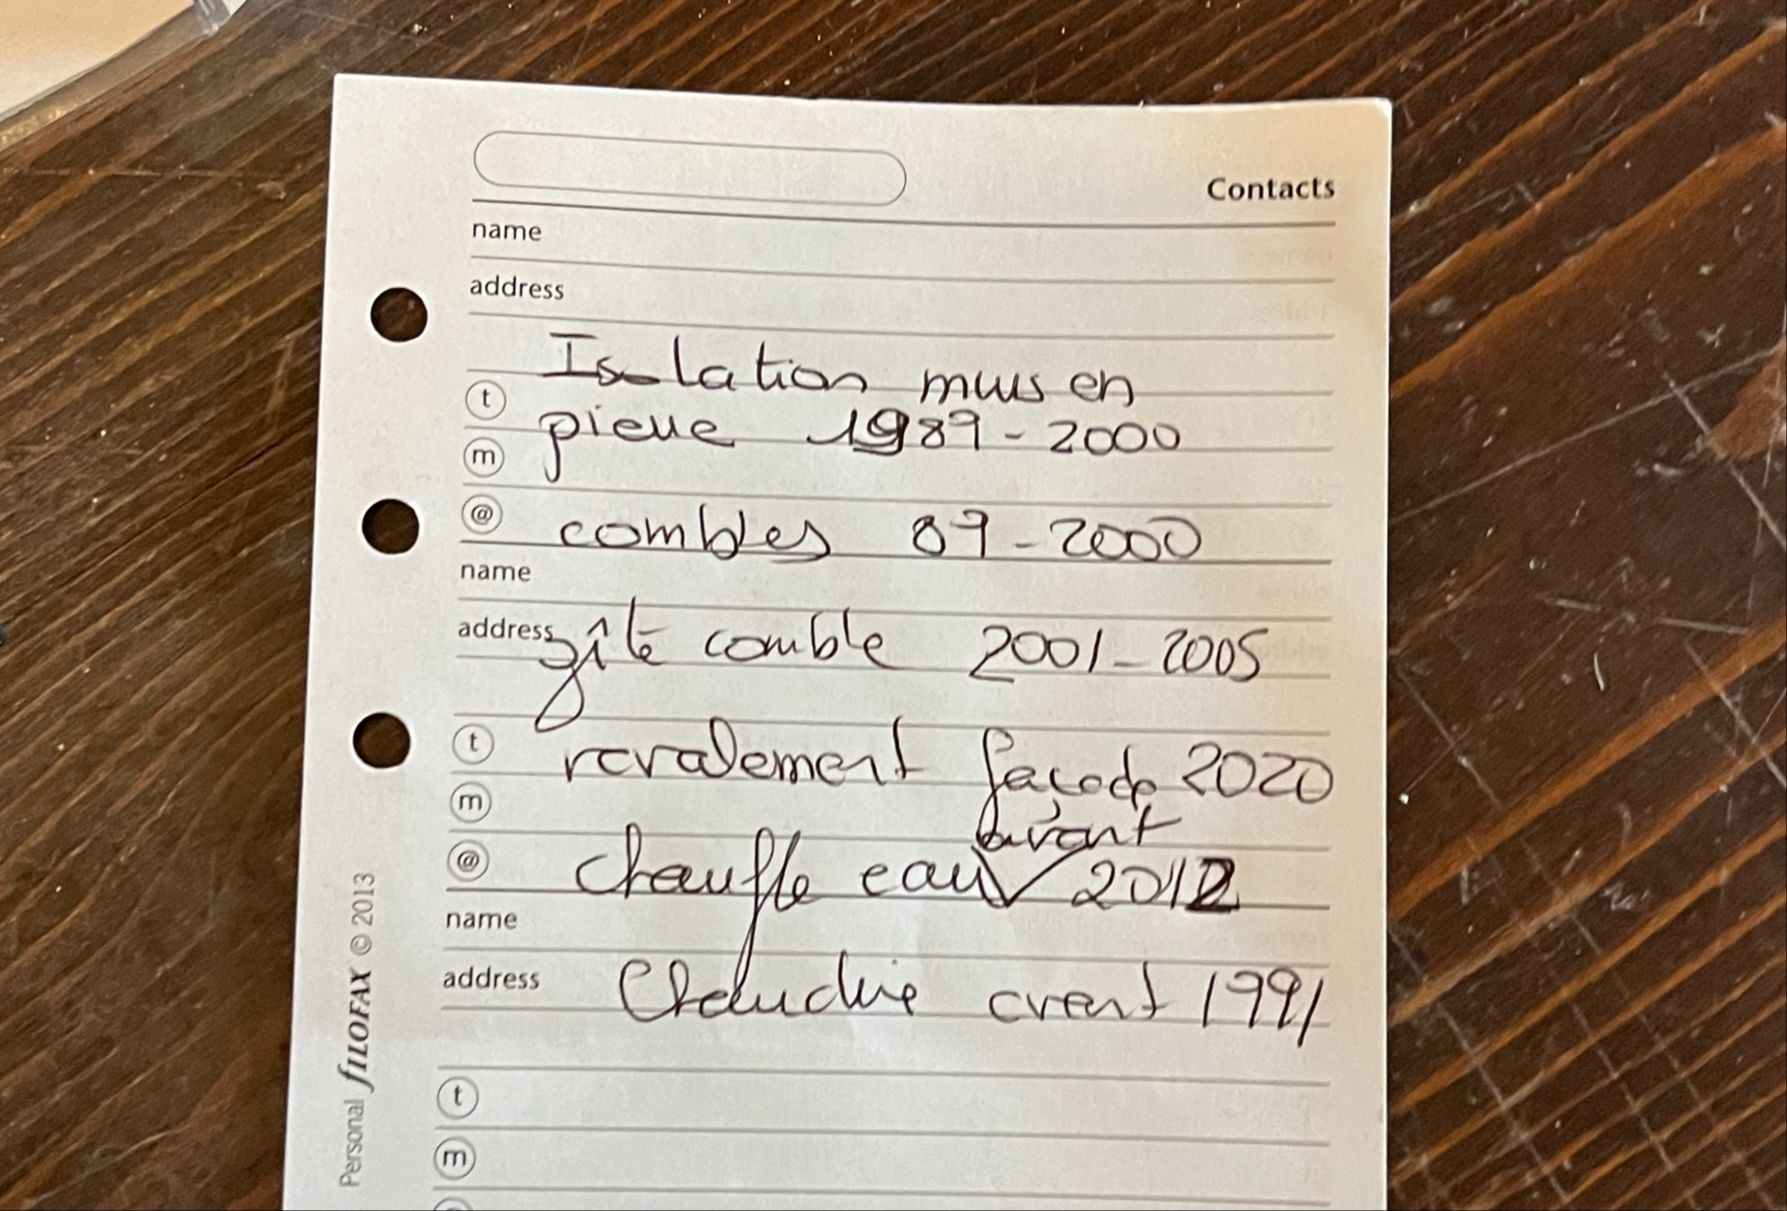 Contacts
name
address
Isolation murs en
t
pierre 1989-2000
m
@ combles 89-2000
name
address gîte comble 2001-2005
t ravalement façade 2020
m
avant
@ chauffe eau 2012
name
address Chaudière avant 1991
t
m
Personal FILOFAX © 2013